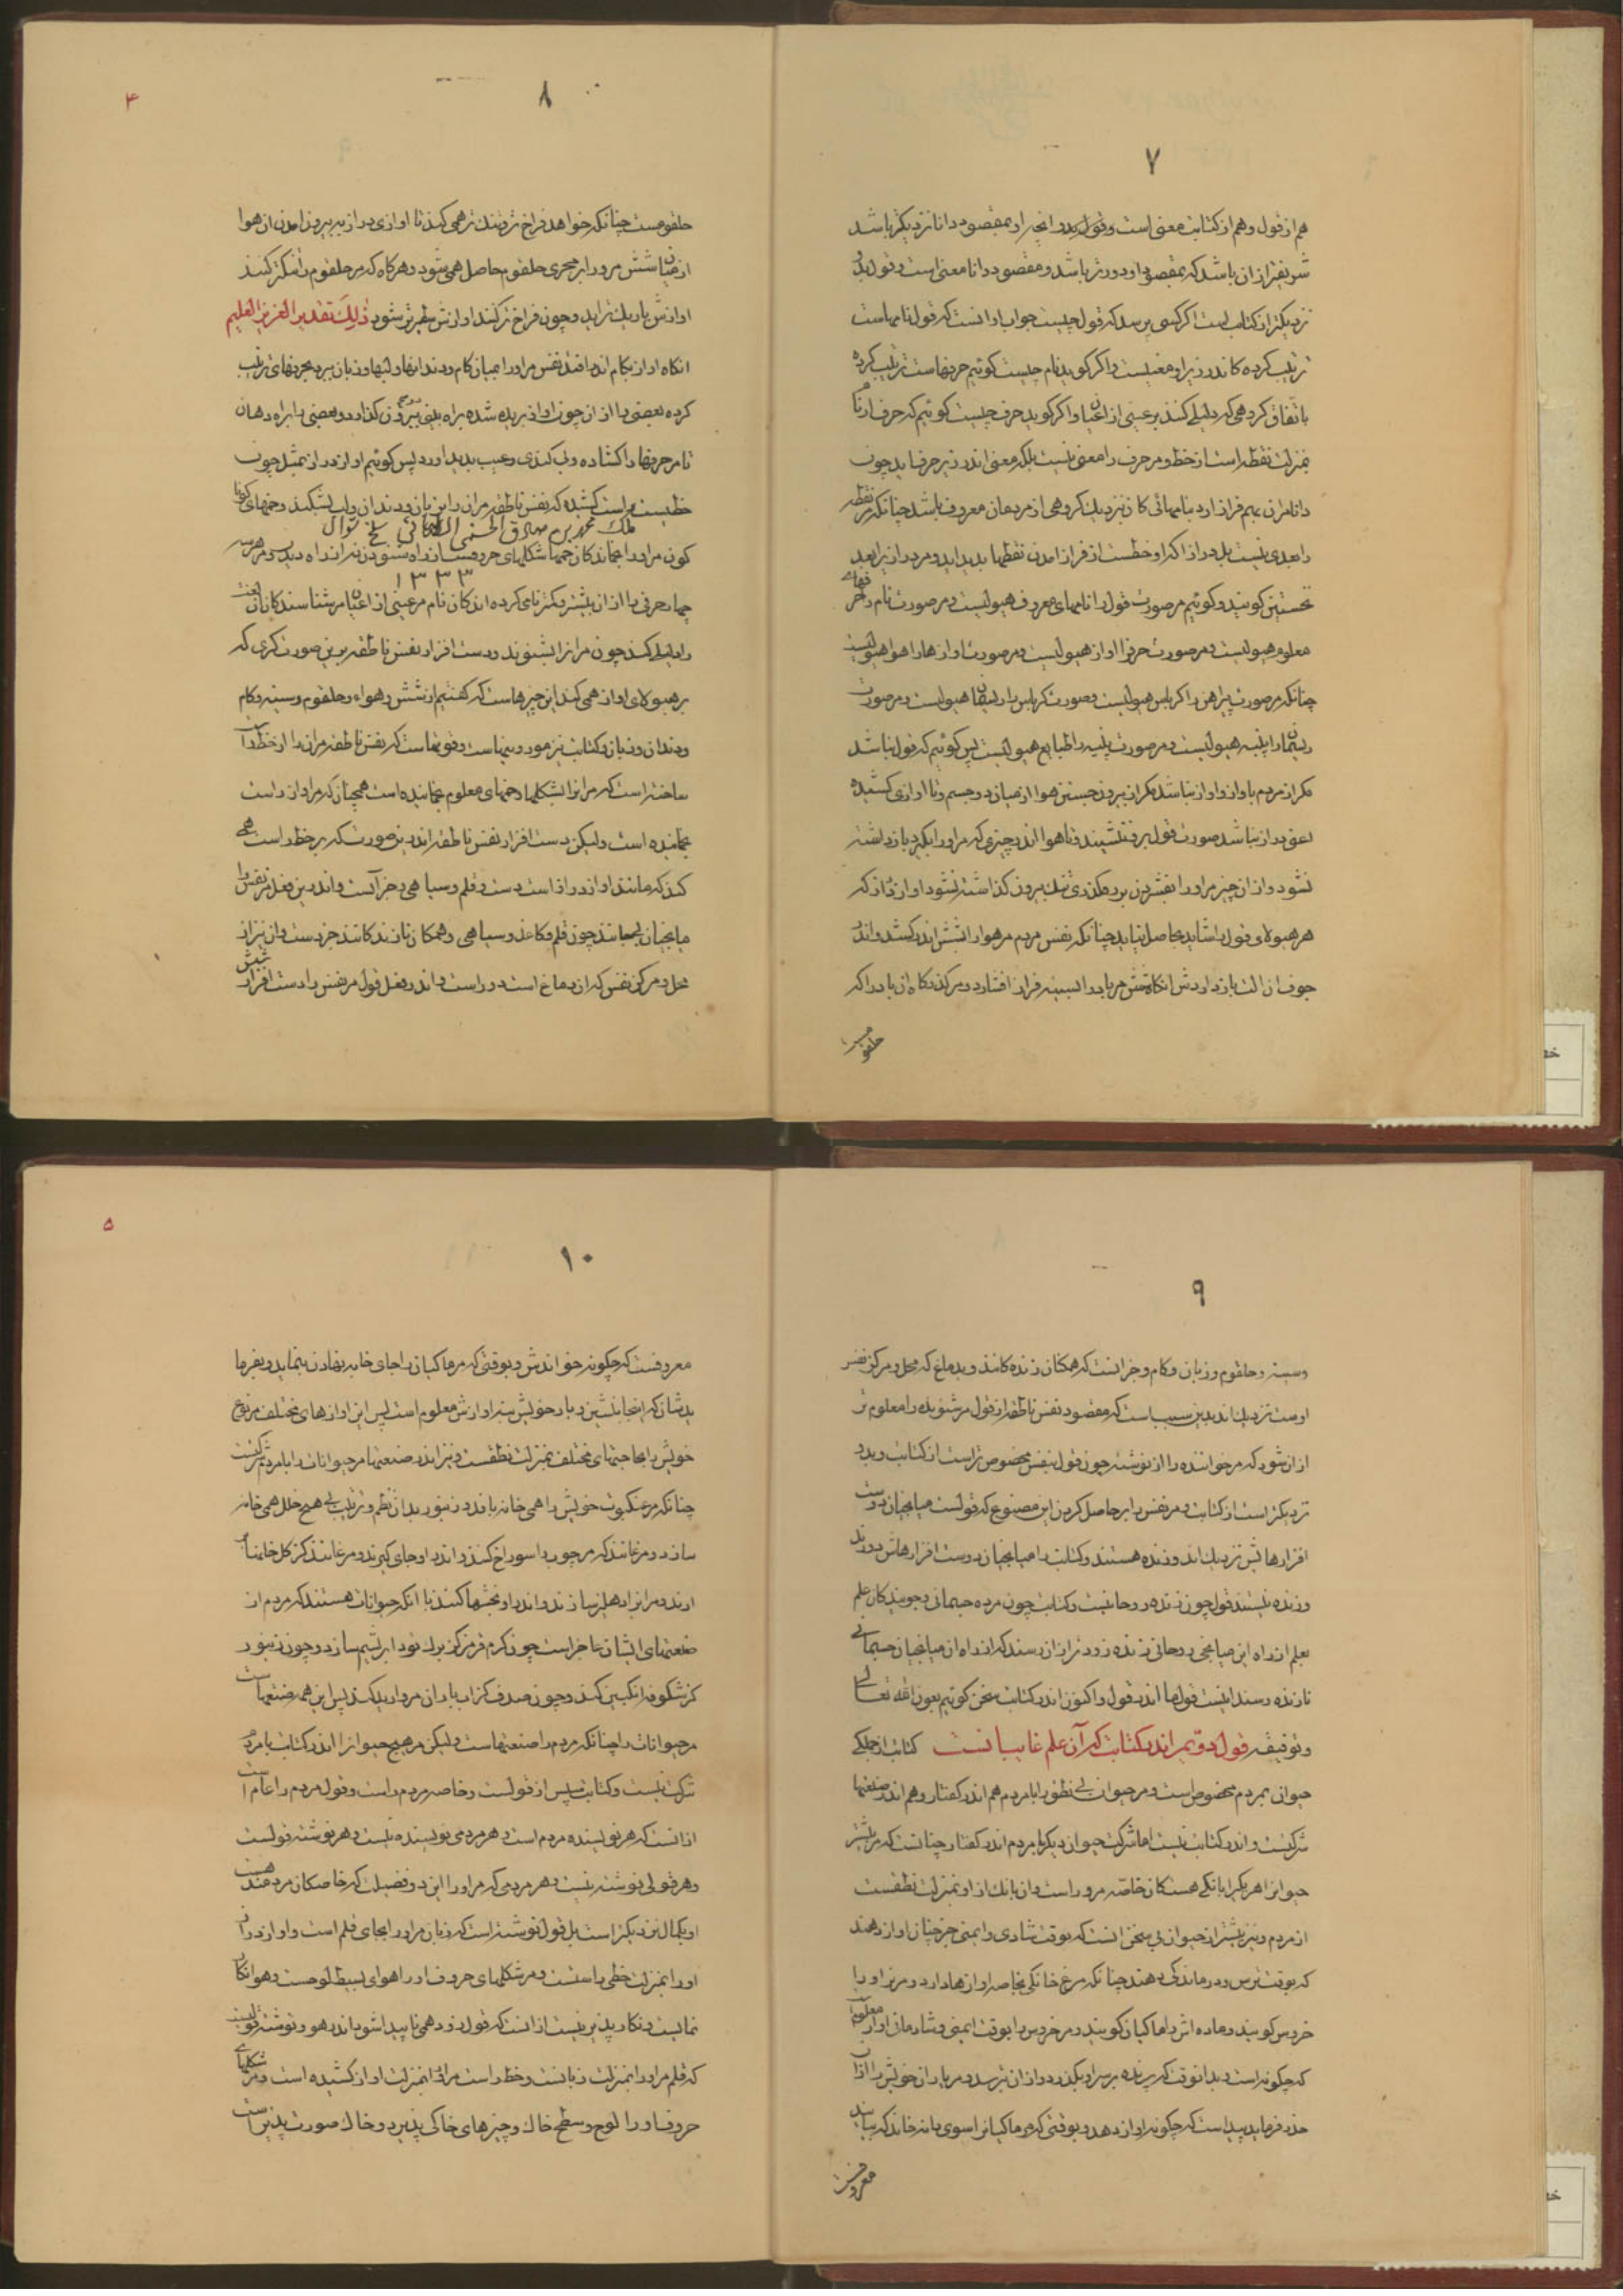 ٧
هم از قول و هم از کتابت معنی است و قول بدو انجا او بمقصود دانا نزدیکتر باشد
شریفتر از ان باشد که بمقصود او دورتر باشد و مقصود دانا معنی است و قول بدو
نزدیکتر از کتابت است اگر کسی پرسد که قول چیست جواب او انست که قول نامهاست
ترتیب کرده کاندر زیر او معنیست و اگر گوید نام چیست گوئیم حرفهاست ترتیب کرده
باتفاق گروهی که دلیلی کند بر عینی از اعیان و اگر گوید حرف چیست گوئیم که حرف از نام
بمنزلت نقطه است از خط و مر حرف را معنی نیست بلکه معنی اندر زیر حرف اید چون
دانا مران بهم فراز ارد بنامهائی کان نزدیک گروهی از مردمان معروف باشد چنانکه مر نقطه
را بعدی نیست بل دراز اکه او خطست از فراز امدن نقطها پدید اید و مر دراز یرا بعد
نخستین گویند و گوئیم مر صورت قول را نامهای معروف هیولیست و مر صورت نام را حرفهای
معلوم هیولیست و مر صورت حرف را اواز هیولیست و مر صورت اوازها را هوا هیولیست
چنانکه مر صورت پیراهن را کرباس هیولیست و صورت کرباس را ریسمان هیولیست و مر صورت
ریسمان را پنبه هیولیست و مر صورت پنبه را طبایع هیولیست پس گوئیم که قول نباشد
مگر از مردم باواز و اواز نباشد مگر از بیرون جستن هوا از میان دو جسم و تا اوازی کشیده
نشود و از ان چیز مر او را بفشردن برهگذری تنگ بیرون گذاشته نشود اواز دراز که
هر هیولای قول را شاید حاصل نیاید چنانکه نفس مردم مر هوا را بشش اندر کشد و اندر
جوف ان الت باز داردش انگاه شش مر باد را بسینه فراز افشارد و مر گذرگاه ان باد را که
حلقومست
٨
۴
حلقومست چنانکه خواهد فراخ تر و تنک تر همی کند تا اوازی دراز به بیرون امدن ان هوا
از میان شش مرورا بر مجری حلقوم حاصل همی شود و هر گاه که مر حلقوم را تنگتر کند
اوازش باریک تر اید و چون فراخ تر کند اوازش سطبرتر شود ذلِكَ تقدير العزيز العليم
انگاه اواز بکام اندر افتد نفس مر اورا بمیان کام و دندانها و لبها و زبان ببرد بحرفهای ترتیب
کرده بعضی را از ان چون اواز بریده شده براه بینی بیرون گذارد و بعضی را براه دهان
تا مر حرفها را گشاده و بی کندی و عیب پدید اورد پس گوئیم اواز دراز بمثل چون
خطیست راست کشیده که نفس ناطقه مران را بزبان و دندان و لب بشکند و خمهای گوناگون
ملك محمد بن صادق الحسنی الطباطبائی سلخ شوال
١٣٣٣
کون مر اورا بخماند کان خمها شکلهای حروفست از راه شنودن نه از راه دیدن و مر هر سه
چهار حرفی را از ان بیشتر و کمتر نامی کرده اند کان نام مر عینی از اعیان مر شناسندگان ان لغت
را دلیلی کند چون مرانرا بشنوند و دست افزار نفس ناطقه بر ین صورت گری که
بر هیولای اواز همی کند این چیزهاست که گفتیم از شش و هواء و حلقوم و سینه و کام
و دندان و زبان و کتابت نیز هم درینهاست و قوتهاست که نفس ناطقه مران را از خط راست
ساخته است که مرانرا بشکلها و خمهای معلوم بخمانیده است همچنان که مر اواز راست
بخمانیده است ولیکن دست افزار نفس ناطقه اندرین صورت که بر خط راست همی
کند که مانند اواز دراز است دست و قلم و سیاهی و جز آنست و اندرین فعل مر نفس را
میانجیان بیجانند چون قلم و کاغذ و سیاهی و همگان نازنده کانند جز دست و ان نیز از
محل و مرکز نفس که ان دماغ است دور است و اندر فعل قول مر نفس را دست افزار شش
٩
و سینه و حلقوم و زبان و کام و جز انست که همگان زنده گانند و بدماغ که محل و مرکز نفس
اوست نزدیک اند بدین سبب است که مقصود نفس ناطقه از قول مر شنونده را معلوم تر
از ان شود که مر خواننده را از نوشته چون قول بنفس مخصوص تر است از کتابت و بدو
نزدیکتر است از کتابت و مر نفس را بر حاصل کردن این مصنوع که قولست میانجیان و دست
افزارهاش نزدیک اند و زنده هستند و کتابت را میانجیان و دست افزارهاش دورند
و زنده نیستند قول چون زنده روحانیست و کتابت چون مرده جسمانی و جویندگان علم
بعلم از راه این میانجی روحانی زنده زودتر از ان رسند که از راه ان میانجیان جسمانی
نازنده رسند اینست قول ما اندر قول و اکنون اندر کتابت سخن گوئیم بعون الله تعالی
و توفیقه قول دوّیم اندر کتابت که آن علم غایبانست کتابت از جملگی
حیوان بمردم مخصوص است و مر حیوان بی نطق را با مردم هم اندر گفتار و هم اندر صنعتها
شرکتست و اندر کتابت نیست اما شرکت حیوان دیگر با مردم اندر گفتار چنانست که مر بیشتر
حیوانرا هر یکرا بانگی هست کان خاصه مرو راست و ان بانگ از او بمنزلت نطقست
از مردم و نیز بیشتر از حیوان بی سخن انست که بوقت شادی و ایمنی جز چنان اواز دهند
که بوقت ترس و درماندگی دهند چنانکه مرغ خانگی بخاصه اوازها دارد و مر نر او را
خروس گویند و ماده اش را ماکیان گویند و مر خروس را بوقت ایمنی و شادمانی اواز معلومست
که چگونه است و بدانوقت که پرنده بر سر او بگذرد و از ان بترسد و مر یاران خویش را از ان
حذر فرماید پیداست که چگونه اواز دهد و بوقتی که مر ماکیانرا سوی دانه خاند که بیابد
معروفست
١٠
۵
معروفست که چگونه خواندش و بوقتی که مر ماکیان را جای خایه نهادن بنماید و بفرما
یدشان که اینجا بنشین و باز خویش نیز اوازش معلوم است پس این اوازهای مختلف مر نوع
خویش را بحاجتهای مختلف بمنزلت نطقست و نیز اندر صنعتها مر حیوانات را با مردم شرکتست
چنانکه مر عنکبوت خویش را همی خانه بافد و زنبور بدان نظم و ترتیب بی هیچ خلل همی خانه
سازد و مرغانند که مر چوب را سوراخ کنند و اندر او جای گیرند و مرغانند کز گل خانها
ارند و مرانرا دهلیز سازند و اندر او بخشها کنند با انکه حیوانات هستند که مردم از
صنعتهای ایشان عاجز است چون کرم قز کز برك تود ابریشم سازد و چون زنبور
کز شکوفه انگبین کند و چون صدف کز اب باران مروارید کند پس این همه صنعتهاست
مر حیوانات را چنانکه مردم را صنعتهاست ولیکن مر هیچ حیوانرا اندر کتابت با مردم
شرکت نیست و کتابت سپس از قولست و خاصه مردم راست و قول مردم را عام است
از انست که هر نویسنده مردم است و هر مردمی نویسنده نیست و هر نوشته قولست
و هر قولی نوشته نیست و هر مردمی که مر او را این دو فضیلت که خاصگان مردمند هست
او بکمال نزدیکتر است بل قول نوشته است که زبان مر او را بجای قلم است و اواز دراز
او را بمنزلت خطی راستست و مر شکلهای حروف او را هوای بسیط لوحست و هوا نگار
نماییست و نگار پذیر نیست از انست که قول زود همی ناپیدا شود اندر هوا و نوشته قولیست
که قلم مر او را بمنزلت زبانست و خط راست مر انرا بمنزلت اواز کشیده است و مر شکلهای
حروف او را لوح و سطح خاك و چیزهای خاکی پذیرد و خاك صورت پذیر است